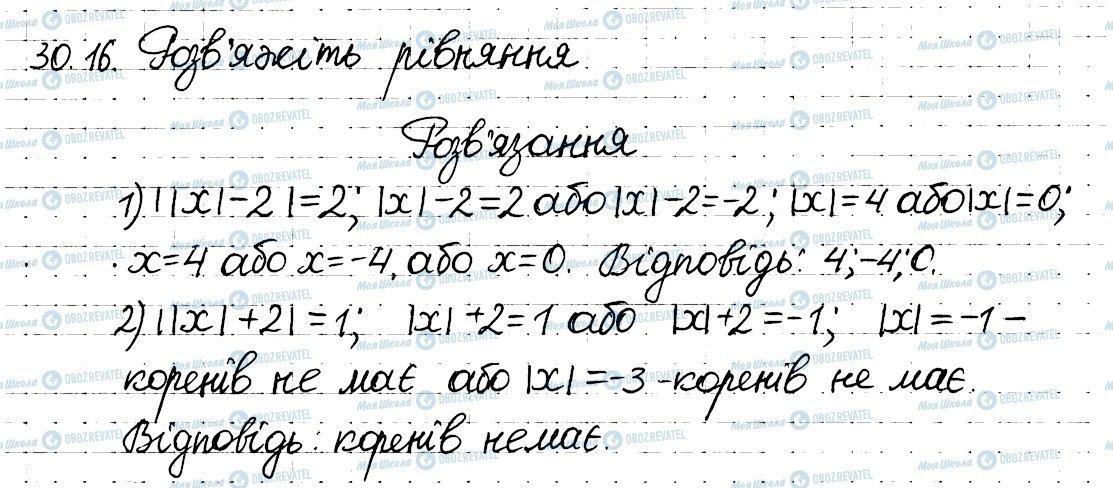 30.16. Розв'яжіть рівняння.
Розв'язання
1) ||x|-2|=2; |x|-2=2 або |x|-2=-2; |x|=4 або |x|=0;
x=4 або x=-4, або x=0. Відповідь: 4;-4;0.
2) ||x|+2|=1; |x|+2=1 або |x|+2=-1; |x|=-1-
коренів не має або |x|=-3-коренів не має.
Відповідь: коренів немає.
МояШкола OBOZREVATEL